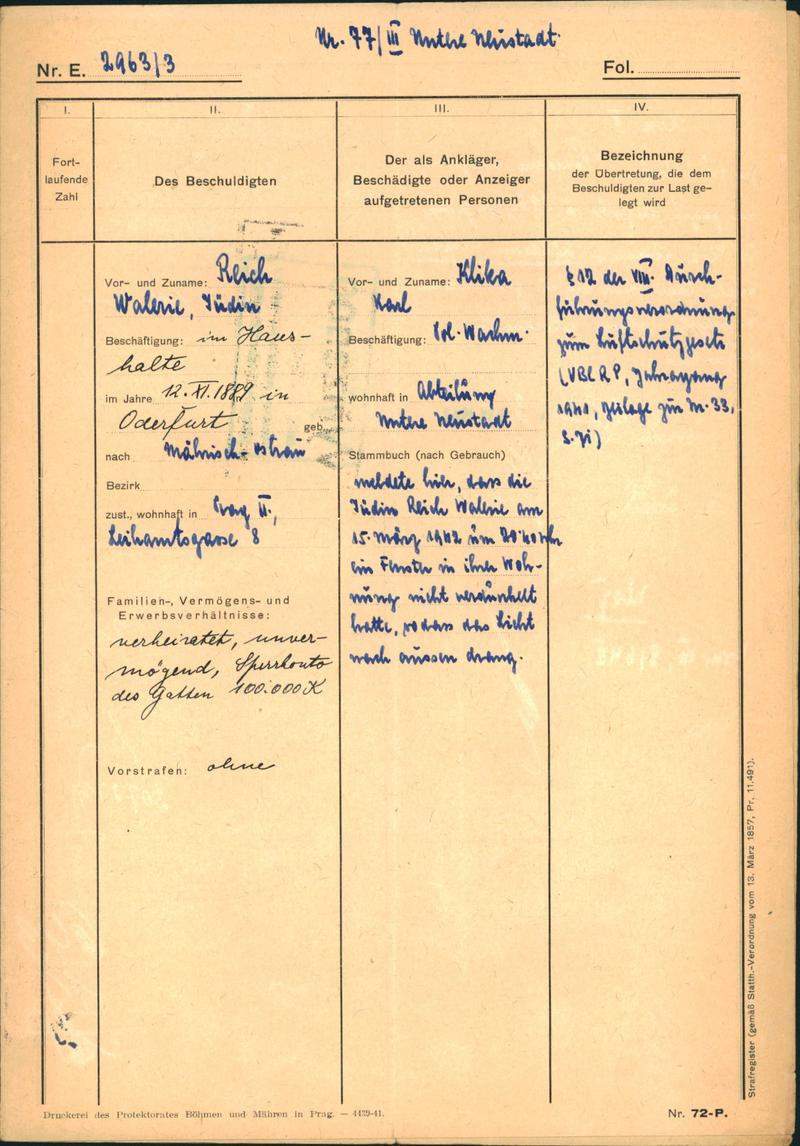 Nr. 77/III Untere Neustadt
Nr. E. 2963/3
Fol.
I.
II.
III.
IV.
Fort-
laufende
Zahl
Des Beschuldigten
Der als Ankläger,
Beschädigte oder Anzeiger
aufgetretenen Personen
Bezeichnung
der Übertretung, die dem
Beschuldigten zur Last ge-
legt wird
Vor- und Zuname: Reich
Walerie, Jüdin
Beschäftigung: im Haus-
halte
im Jahre 12. XI. 1889 in
Oderfurt geb.
nach Mährisch-Ostrau
Bezirk
zust., wohnhaft in Prag II.,
Leihamtsgasse 8
Familien-, Vermögens- und
Erwerbsverhältnisse:
verheiratet, unver-
mögend, Sperrkonto
des Gatten 100.000 K
Vorstrafen: ohne
Vor- und Zuname: Klika
Karl
Beschäftigung: Pol. Wachm.
wohnhaft in Abteilung
Untere Neustadt
Stammbuch (nach Gebrauch)
meldete hier, dass die
Jüdin Reich Walerie am
15. März 1942 um 20.40 Uhr
ein Fenster in ihrer Woh-
nung nicht verdunkelt
hatte, sodass das Licht
nach aussen drang.
§ 12 der VIII. Durch-
führungsverordnung
zum Luftschutzgesetz
(VBLRP, Jahrgang
1941, zu 33,
S.
Strafregister (gemäß Statth.-Verordnung vom 13. März 1857, Pr. 11.491).
Druckerei des Protektorates Böhmen und Mähren in Prag. — 4439-41.
Nr. 72-P.